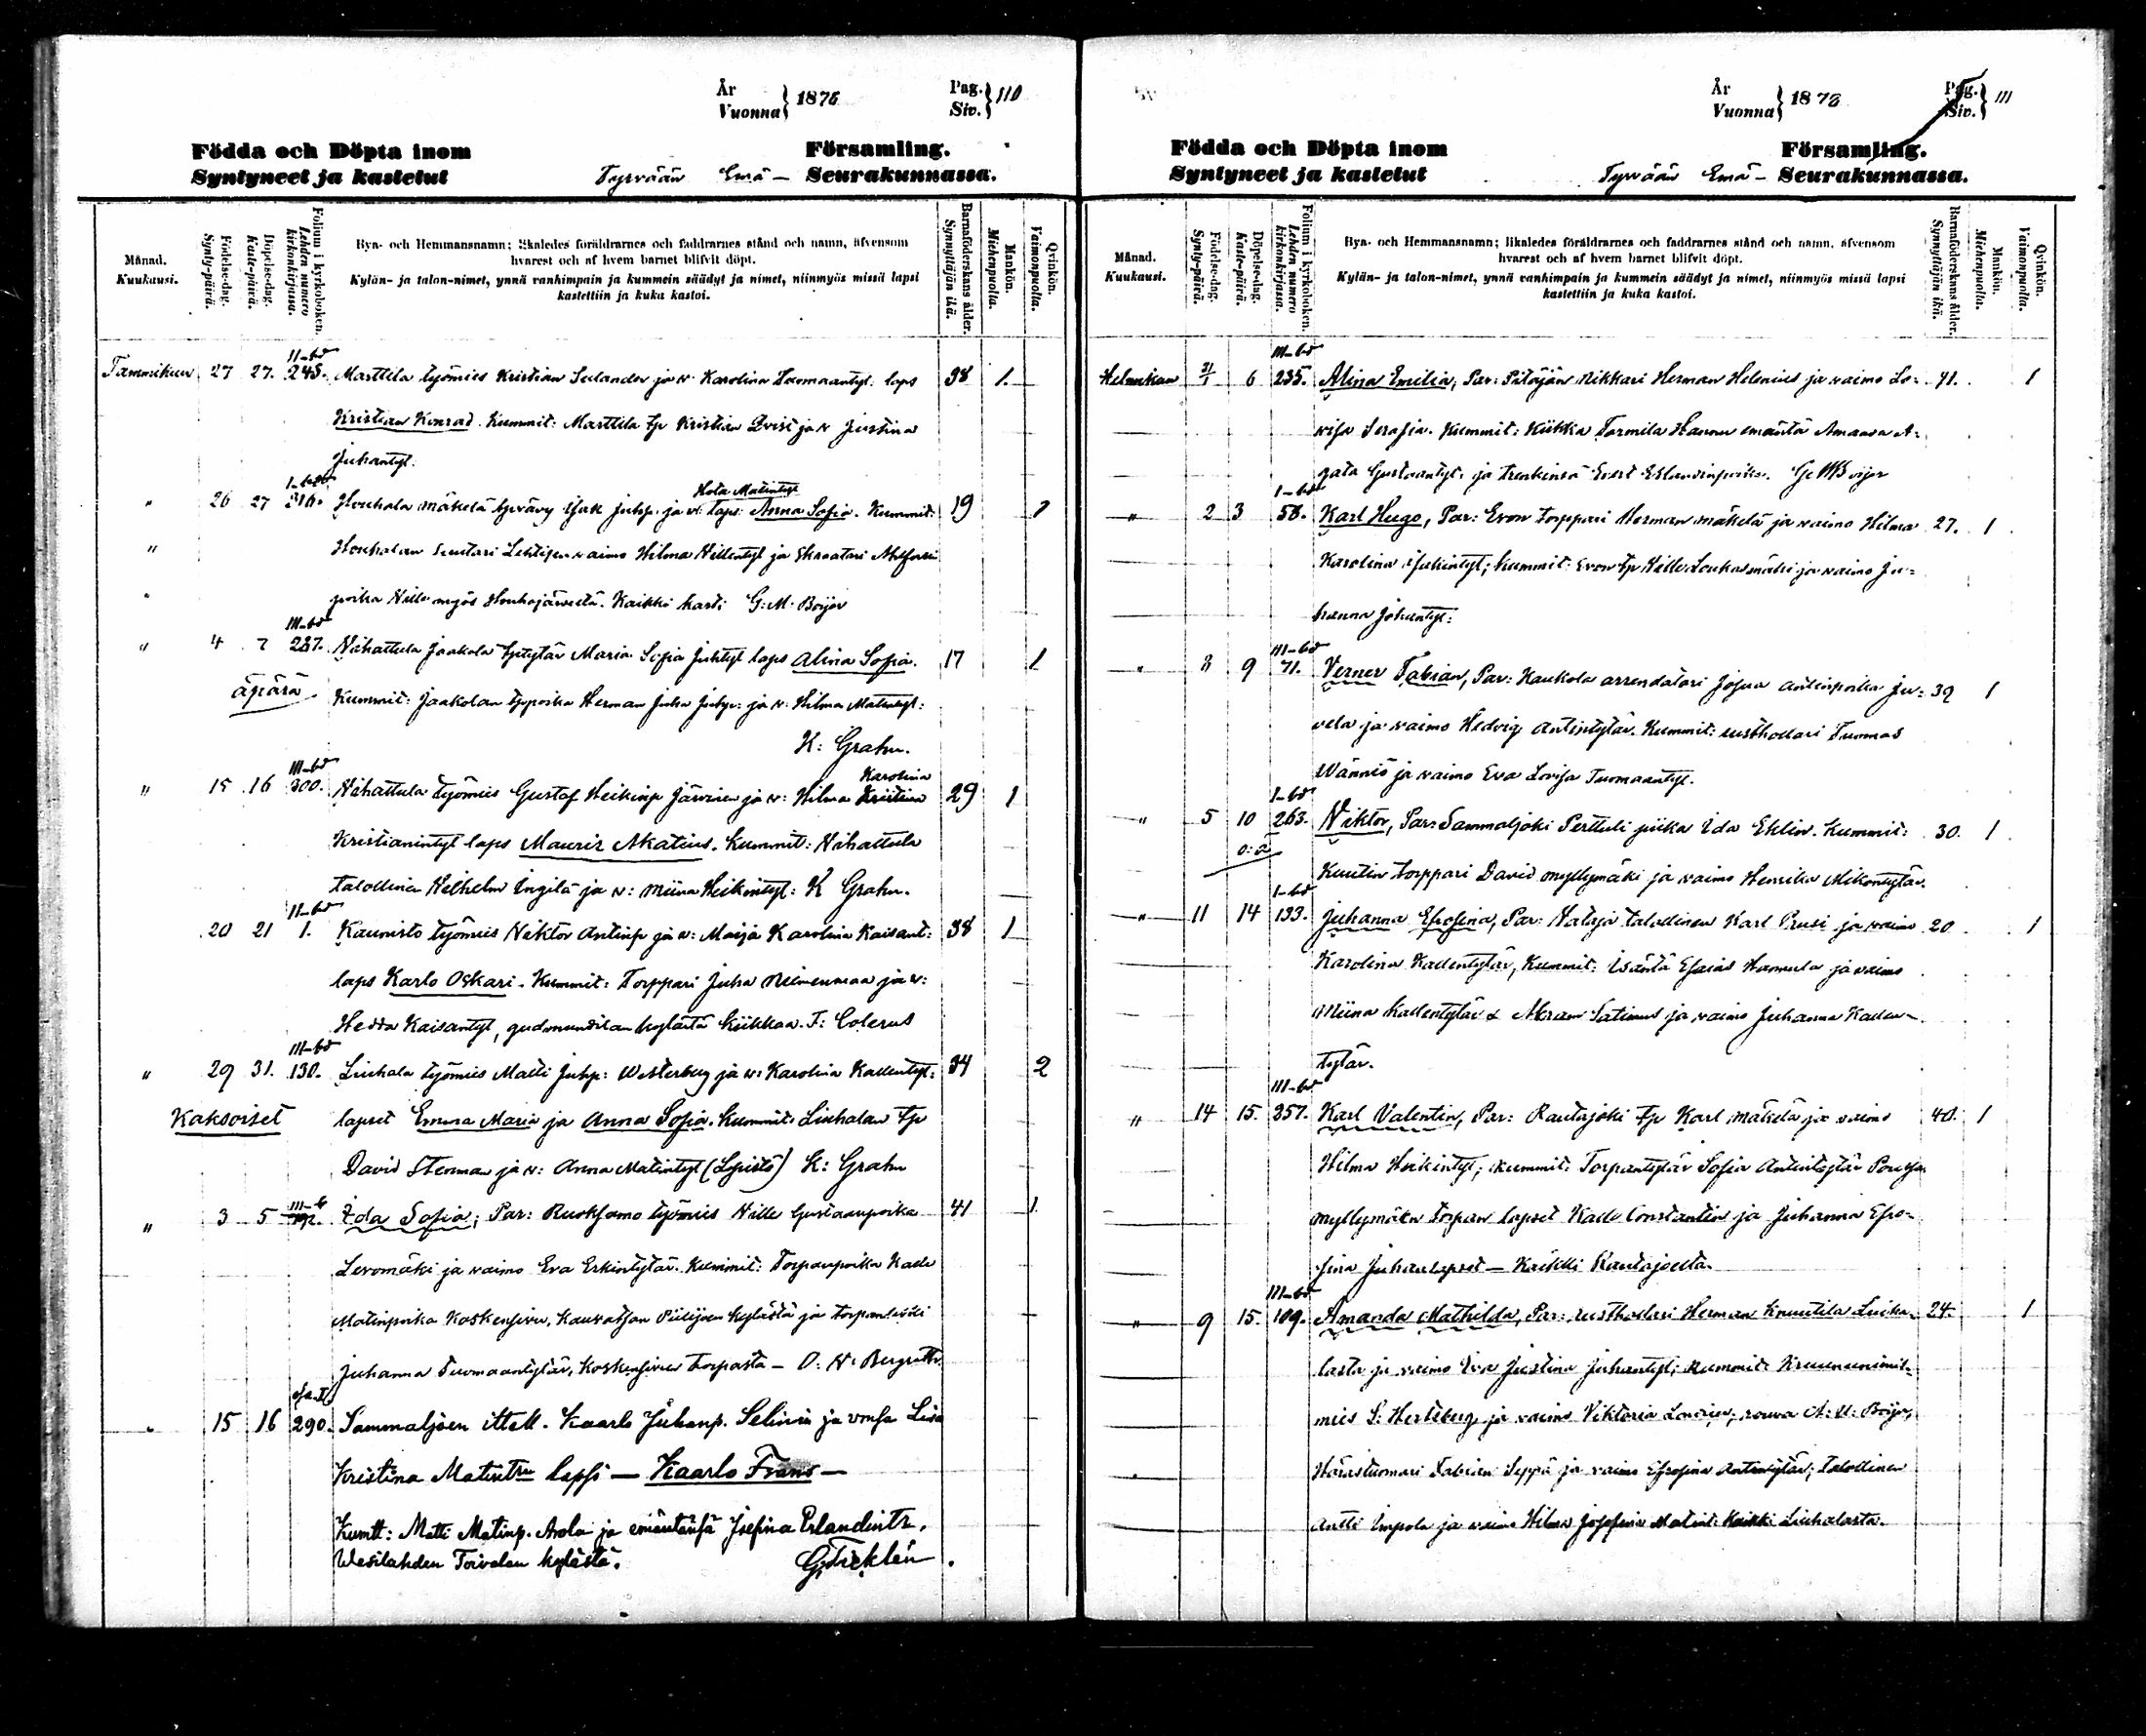 År
Vuonna } 1876
Pag.
Siv. } 110
Födda och Döpta inom Församling.
Syntyneet ja kastetut Tyrvään Emä- Seurakunnassa.
Månad.
Kuukausi.
Födelse-dag.
Synty-päivä.
Döpelse-dag.
Kaste-päivä.
Folium i kyrkoboken.
Lehden numero kirkonkirjassa.
Bya- och Hemmansnamn; likaledes föräldrarnes och faddrarnes stånd och namn, äfvensom
hvarest och af hvem barnet blifvit döpt.
Kylän- ja talon-nimet, ynnä vanhimpain ja kummein säädyt ja nimet, niinmyös missä lapsi
kastettiin ja kuka kastoi.
Barnaföderskans ålder.
Synnyttäjän ikä.
Mankön.
Miehenpuolta.
Qvinkön.
Vaimonpuolta.
II-bd
Tammikuu 27 27. 245. Marttila työmies Kristian Selander ja v. Karolina Tuomaantyt. laps 38 1.
Kristian Konrad. Kummit: Marttila tp Kristian Qvist ja v Justina
Juhantyt.
Hota Matintyt
" 26 27 316. Houhala mäkelä Isak Juhp. ja v: laps: Anna Sofia. Kummit: 19 1
" Houhalan Lehtisen vaimo Hilma Villentyt ja
poika Ville myös Houhajärvestä. Kaikki kast: G. M. Boijer
III-bd
" 4 7 287. Vihattula Jaakola Maria Sofia Juhtyt laps Alina Sofia. 17 1
äpärä Kummit: Jaakolan Herman Juha Juhp: ja v: Hilma Matintyt:
K: Grahn.
III-bd Karolina
" 15 16 300. Vihattula työmies Gustaf Heikinp Järvinen ja v: Hilma Kristina 29 1
Kristianintyt laps Mauriz Akatius. Kummit: Vihattula
talollinen Vilhelm Ingilä ja v: Miina Heikintyt: K Grahn.
II-bd
20 21 1. Kaunisto työmies Viktor Antinp ja v: Maija Karolina Kaisant: 38 1
laps Karlo Oskari. Kummit: Torppari Juha Niinenmaa ja v:
Hedda Kaisantyt, kylästä Kiikkaa. F: Colerus
III-bd
" 29 31. 130. Liuhala työmies Matti Juhp: Westerberg ja v: Karolina Kallentyt: 34 2
Kaksoiset lapset Emma Maria ja Anna Sofia. Kummit: Liuhalan tp
David Stenman ja v: Anna Matintyt (Lepistö) K: Grahn
" 3 5 Ida Sofia; Par: Ruoksamo työmies Ville Gustaanpoika 41 1.
Levomäki ja vaimo Eva Erkintytär. Kummit: Torpanpoika Kalle
Matinpoika Koskensivu, Kauvatsan Piilijoen kylästä ja torpanleski
Juhanna Tuomaantytär, Koskensivun torpasta — O. W. Bergroth.
15 16 290. Sammaljoen ittell. Kaarlo Juhanp. Selinin ja vmsa Lisa
Kristina Matintr lapsi — Kaarlo Frans —
Kumtt: Matti Matinp. Arola ja emäntänsä Josefina Erlandintr,
Wesilahden Toivolan kylästä. G. Ticklén.
År
Vuonna } 1876
Pag.
Siv. } 111
Födda och Döpta inom Församling.
Syntyneet ja kastetut Tyrvään Emä- Seurakunnassa.
Månad.
Kuukausi.
Födelse-dag.
Synty-päivä.
Döpelse-dag.
Kaste-päivä.
Folium i kyrkoboken.
Lehden numero kirkonkirjassa.
Bya- och Hemmansnamn; likaledes föräldrarnes och faddrarnes stånd och namn, äfvensom
hvarest och af hvem barnet blifvit döpt.
Kylän- ja talon-nimet, ynnä vanhimpain ja kummein säädyt ja nimet, niinmyös missä lapsi
kastettiin ja kuka kastoi.
Barnaföderskans ålder.
Synnyttäjän ikä.
Mankön.
Miehenpuolta.
Qvinkön.
Vaimonpuolta.
III-bd
Helmikuu 31/1 6 235. Alina Emilia, Par: Pitäjän nikkari Herman Helenius ja vaimo Lo- 41. 1
visa Serafia. Kummit: Kiikka Tormila Hannu emäntä Amanda A-
gata Gustaantyt. ja trenkinsä Evert Erlandinpoika. G. M Boijer
I-bd
" 2 3 58. Karl Hugo, Par: Evon torppari Herman mäkelä ja vaimo Hilma 27. 1
Karolina Isakintyt; kummit: Evon tp Kalle Loukasmäki ja vaimo Ju-
hanna Johantyt:
III-bd
" 8 9 71. Verner Fabian, Par: Kaukola arrendatori Josua Antinpoika Ju- 39 1
vela ja vaimo Hedvig Antintytär. Kummit: rusthollari Tuomas
Wänniö ja vaimo Eva Lovisa Tuomaantyt.
I-bd
" 5 10 263. Viktor, Par: Sammaljoki Perttuli piika Ida Eklin. Kummit: 30. 1
o: ä Kuutin torppari David myllymäki ja vaimo Henrika Mikontytär.
I-bd
" 11 14 133. Juhanna Efrosina, Par: Nataja talollinen Karl Prusi ja vaimo 20 1
Karolina Kallentytär, Kummit: Isäntä Esaias Hannula ja vaimo
Miina Kallentytär & Abram Satimus ja vaimo Juhanna Kallen-
tytär.
III-bd
" 14 15. 257. Karl Valentin, Par: Rautajoki tp Karl mäkelä ja vaimo 40. 1
Hilma Heikintyt; Kummit: Torpantytär Sofia Antintytär
myllymäen torpan lapset Kalle Constantin ja Juhanna Efro-
sina Juhanlapset — Kaikki Rautajoelta.
III-bd
" 9 15. 109. Amanda Mathilda, Par: rusthollari Herman Knuutila Liuha- 24. 1
lasta ja vaimo Eva Justina Juhantyt; kummit: Kruununnimis-
mies S: Hertsberg ja vaimo Viktoria Lovisa, rouva A: U: Boijer,
Härästuomari Fabian Seppä ja vaimo Efrosina Antintytär; Talollinen
Antti Impola ja vaimo Hilma Josefina Matint: Kaikki Liuhalasta.